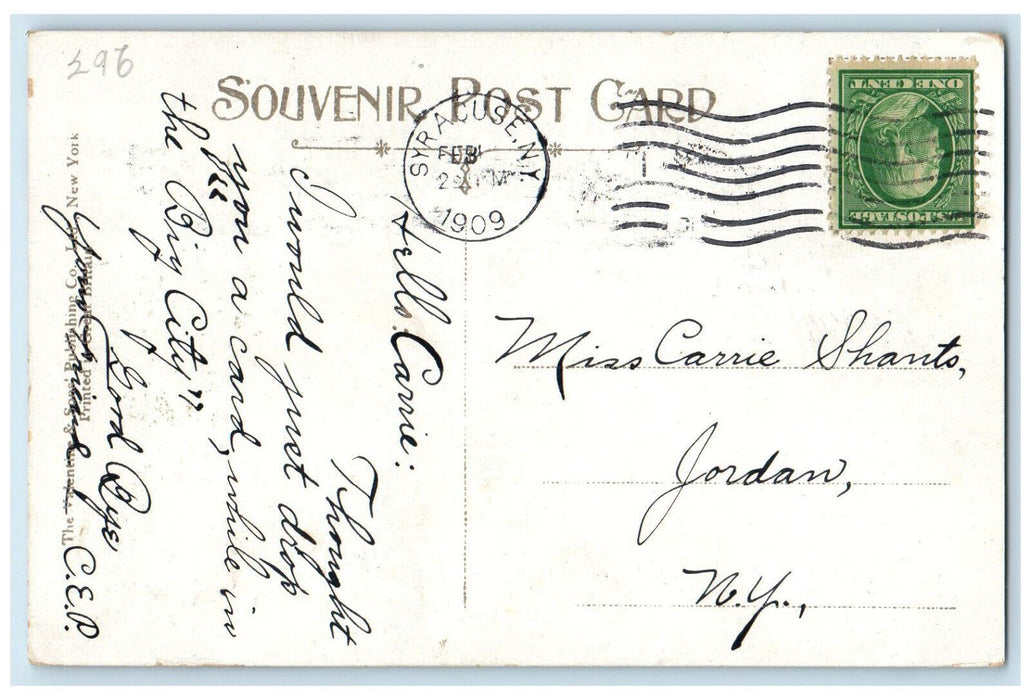 296
SOUVENIR POST CARD
SYRACUSE, N.Y.
FEB
2
M
1909
ONE CENT
POSTAGE
Hello Carrie:
Thought
I would just drop
you a card, while in
the "Big City"
Good Bye
Your Friend
C.E.P.
Miss Carrie Shants,
Jordan,
N.Y.,
The Valentine & Sons' Publishing Co., Ltd., New York
Printed in Great Britain